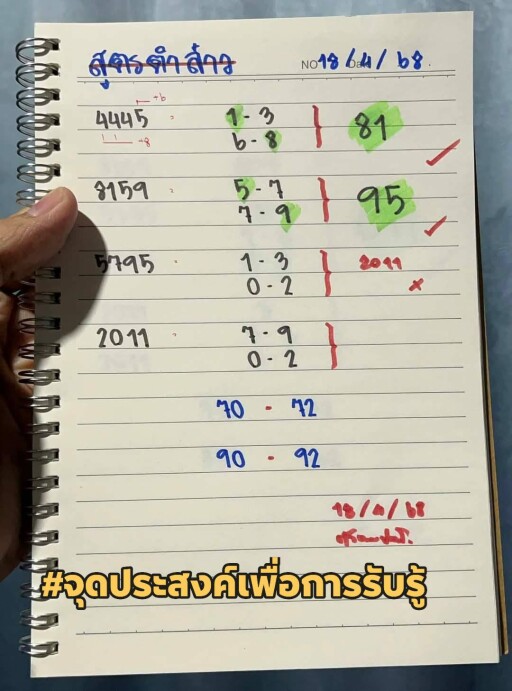 สูตรตำส่าว
NO 18/4/68. Date
+6
4445 1-3 } 81
+8 6-8
8159 5-7 } 95
7-9
5795 1-3 } 2011
0-2 ×
2011 7-9 }
0-2
70 - 72
90 - 92
18/4/68
#จุดประสงค์เพื่อการรับรู้